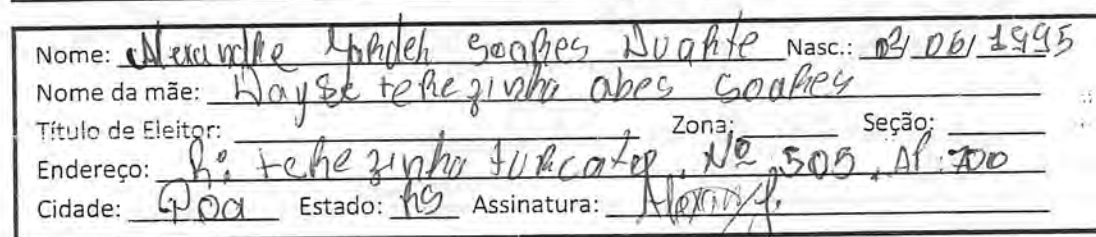 Nome: Alexandre Yordeh Soares Duarte Nasc.: 03/06/1995
Nome da mãe: Dayse terezinha abes Soares
Título de Eleitor: Zona: Seção:
Endereço: R: terezinha turcato, Nº 505, AP: 700
Cidade: Poa Estado: RS Assinatura: